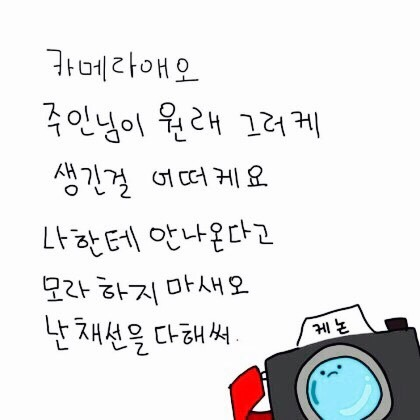 카메라애오
주인님이 원래 그러케
생긴걸 어떠케요
나한테 안나온다고
모라 하지 마새오
난 채선을 다해써.
케논